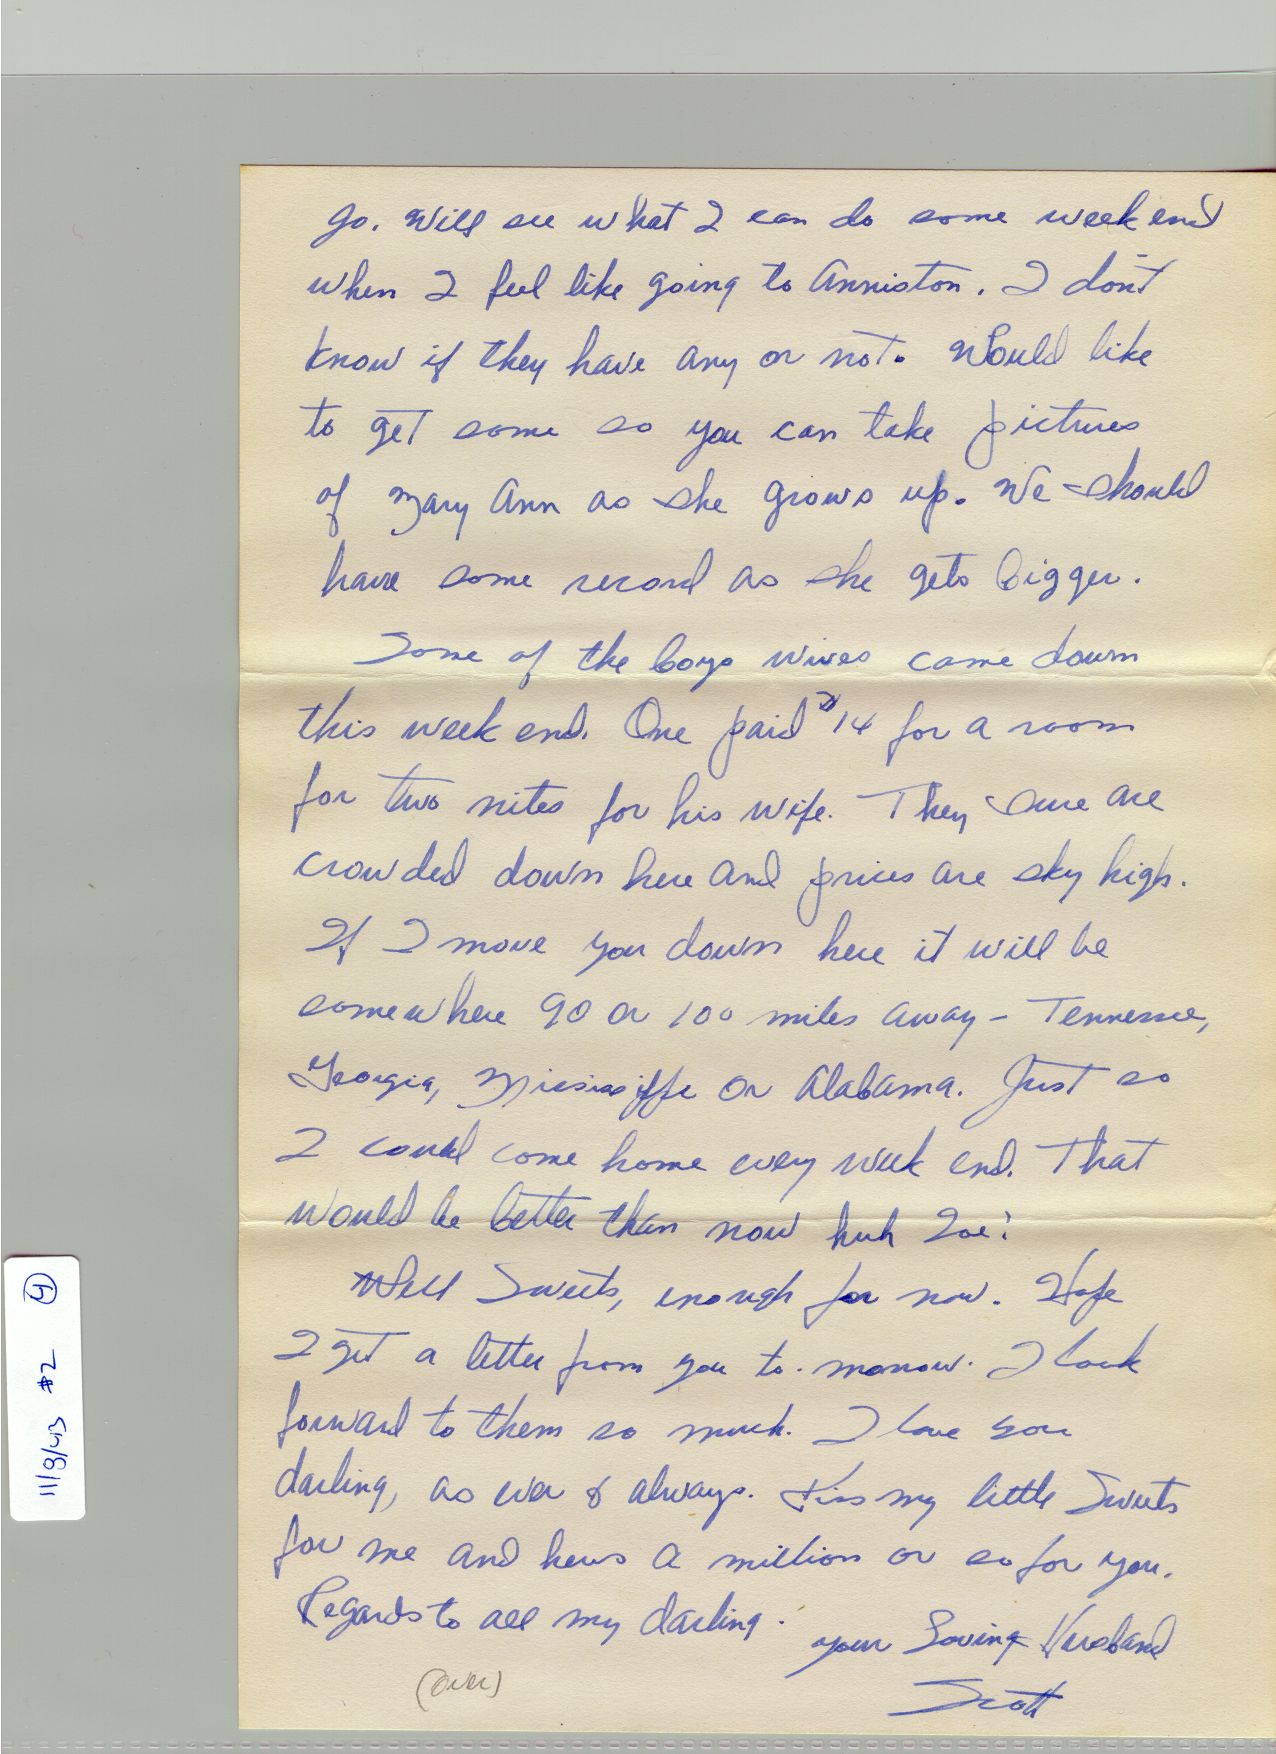 go. Will see what I can do some week end
when I feel like going to Anniston. I don't
know if they have any or not. Would like
to get some so you can take pictures
of Mary Ann as she grows up. We should
have some record as she gets bigger.
Some of the boys wives came down
this week end. One paid $14 for a room
for two nites for his wife. They sure are
crowded down here and prices are sky high.
If I move you down here it will be
somewhere 90 or 100 miles away - Tennessee,
Georgia, Mississippi or Alabama. Just so
I could come home every week end. That
would be better than now huh Zoe?
Well Sweets, enough for now. Hope
I get a letter from you to-morrow. I look
forward to them so much. I love you
darling, as ever & always. Kiss my little Sweets
for me and heres a million or so for you.
Regards to all my darling.
your Loving Husband
Scott
(over)
11/8/43 #2 4